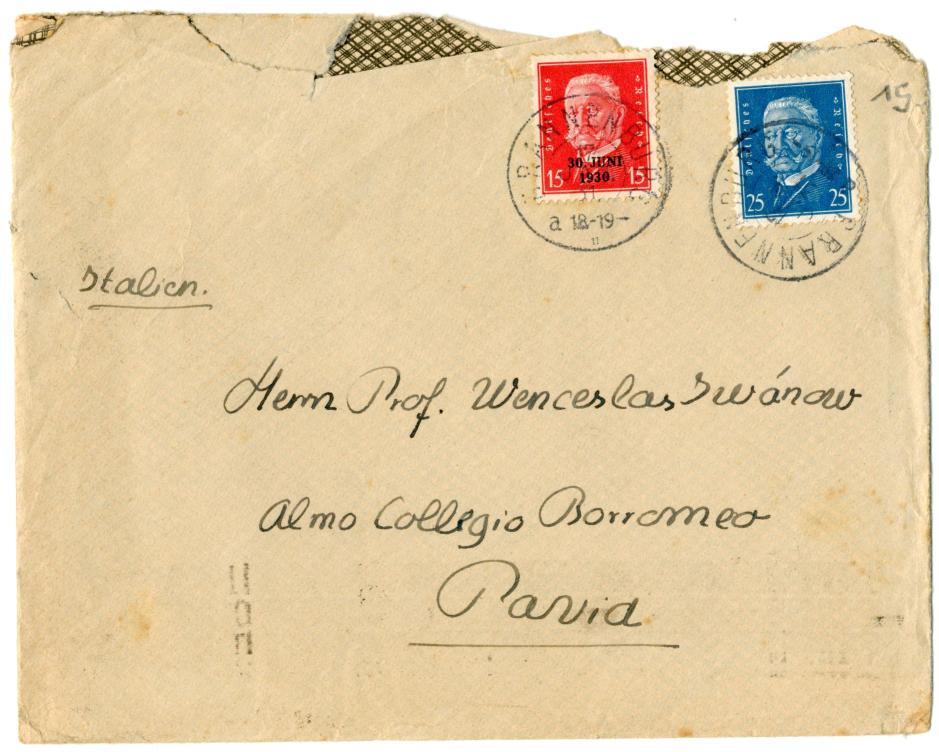 15
Deutsches Reich
30. JUNI
1930.
15 15
BRANNENBURG
a 18-19-
Deutsches Reich
25 25
BRANNENBURG
Italien.
Herrn Prof. Wenceslas Iwánow
Almo Collegio Borromeo
Pavia